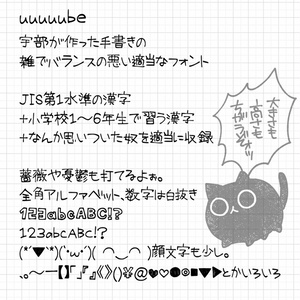 uuuuube
宇部が作った手書きの
雑でバランスの悪い適当なフォント
JIS第1水準の漢字
+小学校1〜6年生で習う漢字
+なんか思いついた奴を適当に収録
薔薇や憂鬱も打てるよぉ。
全角アルファベット、数字は白抜き
123abcABC!?
123abcABC!?
(*´▼`*)(`･ω･´)( ◠‿◠ )顔文字も少し。
、。〜ー【】『』『』《》()
@♥♡●◎■▼▶とかいろいろ
大きさも
高さも
ちがうぞォッ